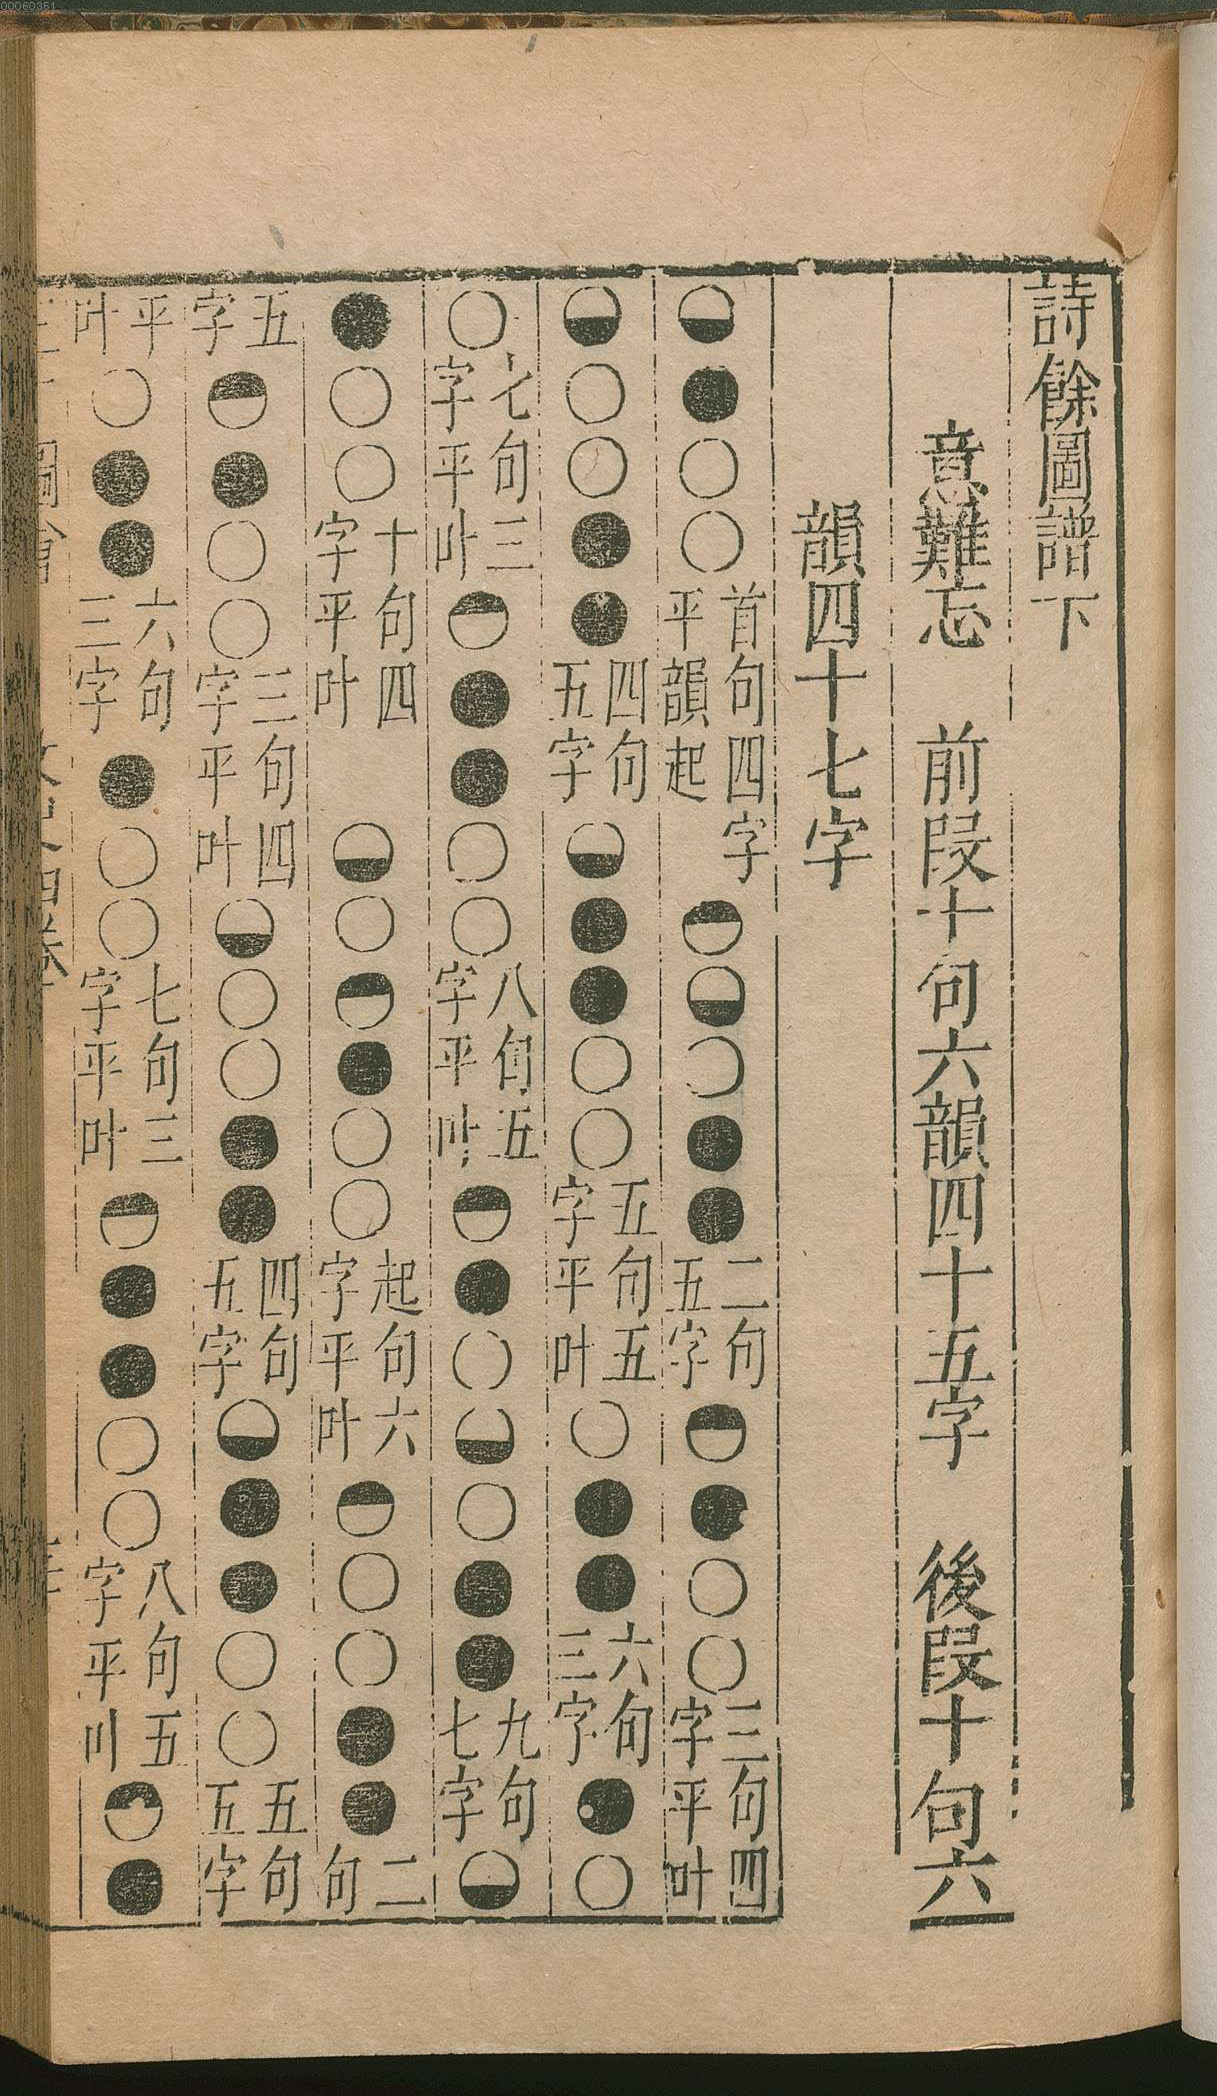 詩餘圖譜下
意難忘 前段十句六韻四十五字 後段十句六
韻四十七字
◒●○○首句四字平韻起◓◒○●●二句五字◓●○○三句四字平叶
◒○○●●四句五字◒●●○○五句五字平叶○●●六句三字●○
○七句三字平叶◓●●○○八句五字平叶◓●○◒○●●九句七字◒
●○○十句四字平叶 ◒○◓●○○起句六字平叶◓○○●●二句
五字◓●○○三句四字平叶◒○○●●四句五字◒●●○○五句五字
平叶○●●六句三字●○○七句三字平叶◓●●○○八句五字平叶◓●